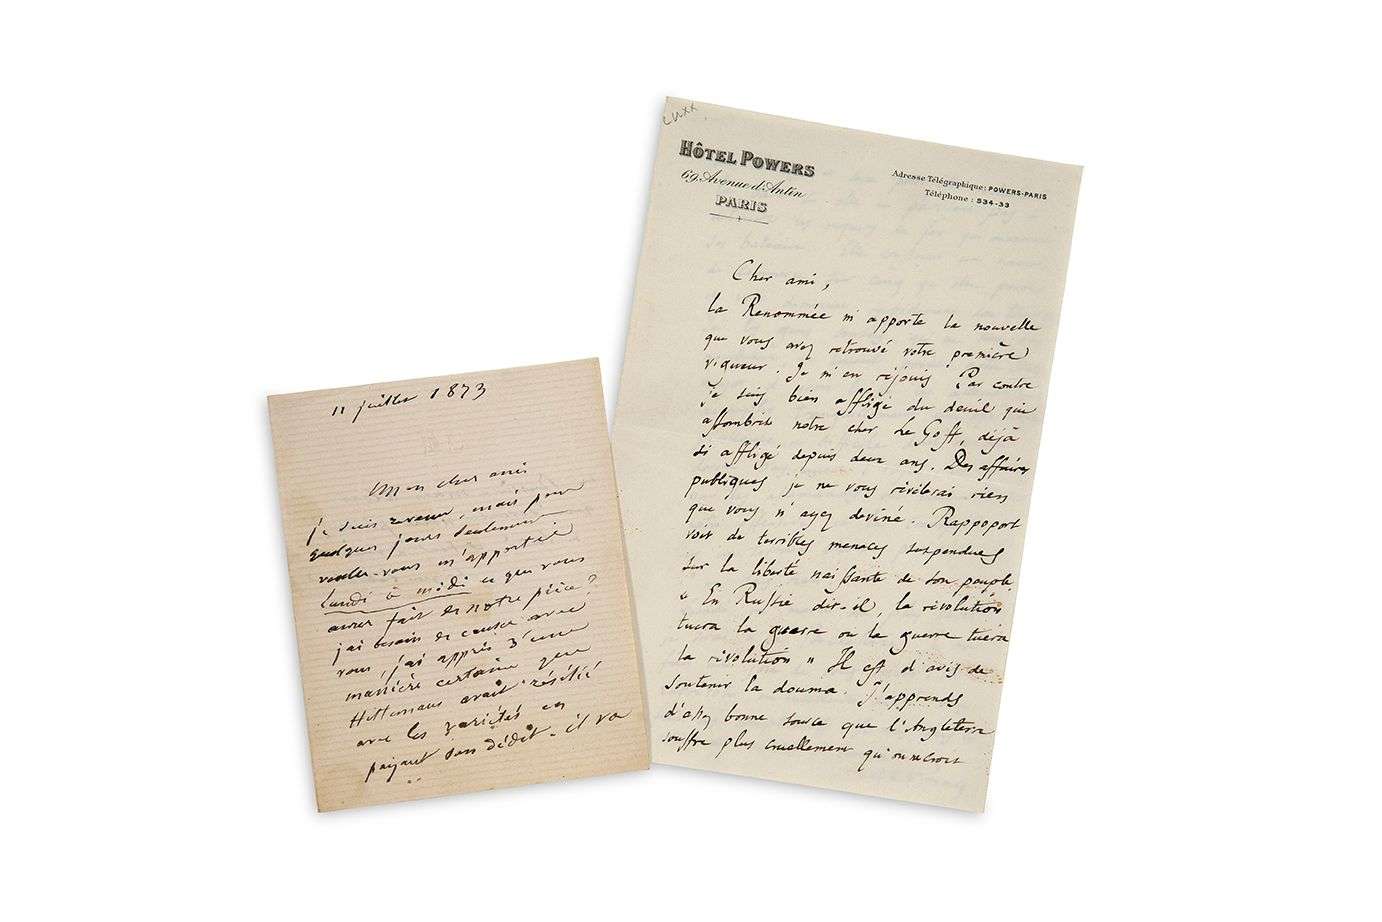 11 juillet 1873
Mon cher ami
je suis revenu, mais pour
quelques jours seulement
voulez-vous m'apporter
lundi à midi ce que vous
aurez fait de notre pièce ?
j'ai besoin de causer avec
vous, j'ai appris d'une
manière certaine que
Hittemans avait résilié
avec les variétés en
payant son dédit. il va
HÔTEL POWERS
69, Avenue d'Antin
PARIS
Adresse Télégraphique: POWERS-PARIS
Téléphone : 534-33
Cher ami,
la Renommée m'apporte la nouvelle
que vous avez retrouvé votre première
vigueur. Je m'en réjouis Par contre
je suis bien affligé du deuil qui
assombrit notre cher Le Goff, déjà
si affligé depuis deux ans. Des affaires
publiques je ne vous révèlerai rien
que vous n'ayez deviné. Rappoport
voit de terribles menaces suspendues
sur la liberté naissante de son peuple.
« En Russie dit-il, la révolution
tuera la guerre ou la guerre tuera
la révolution » Il est d'avis de
soutenir la douma. J'apprends
d'assez bonne source que l'Angleterre
souffre plus cruellement qu'on ne croit